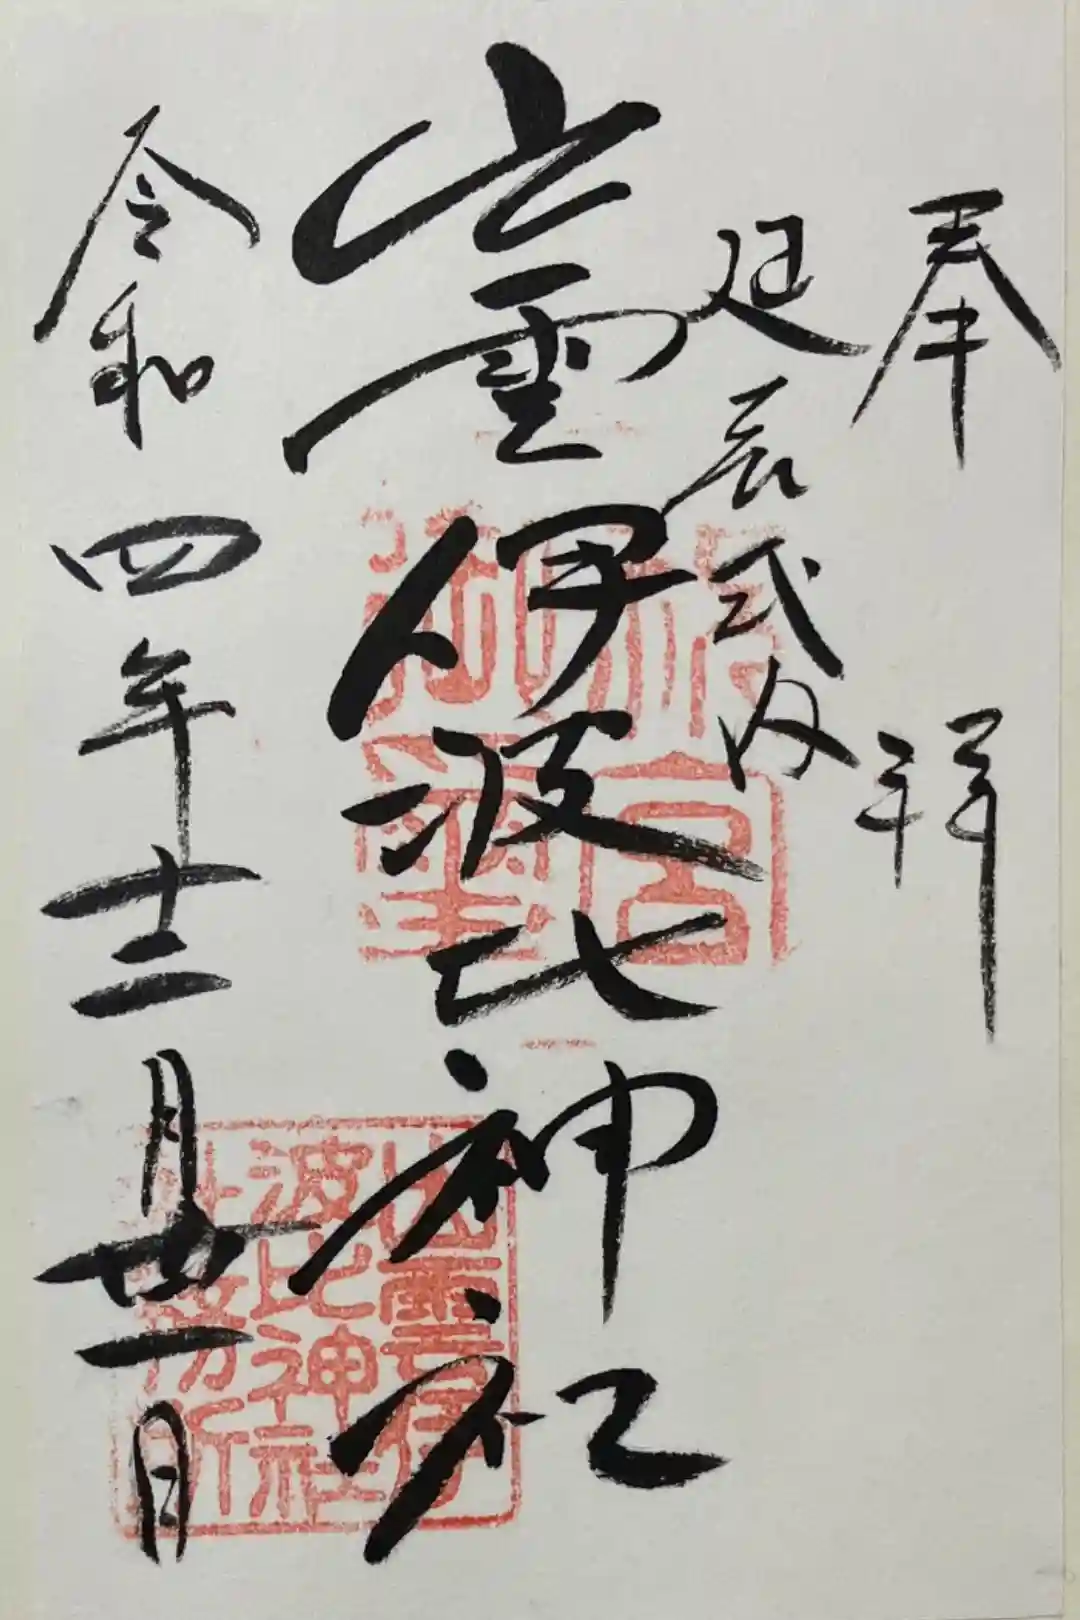 奉拝
延喜式内
出雲伊波比神社
令和四年十二月丗一日
出雲伊
波比神社
社務所